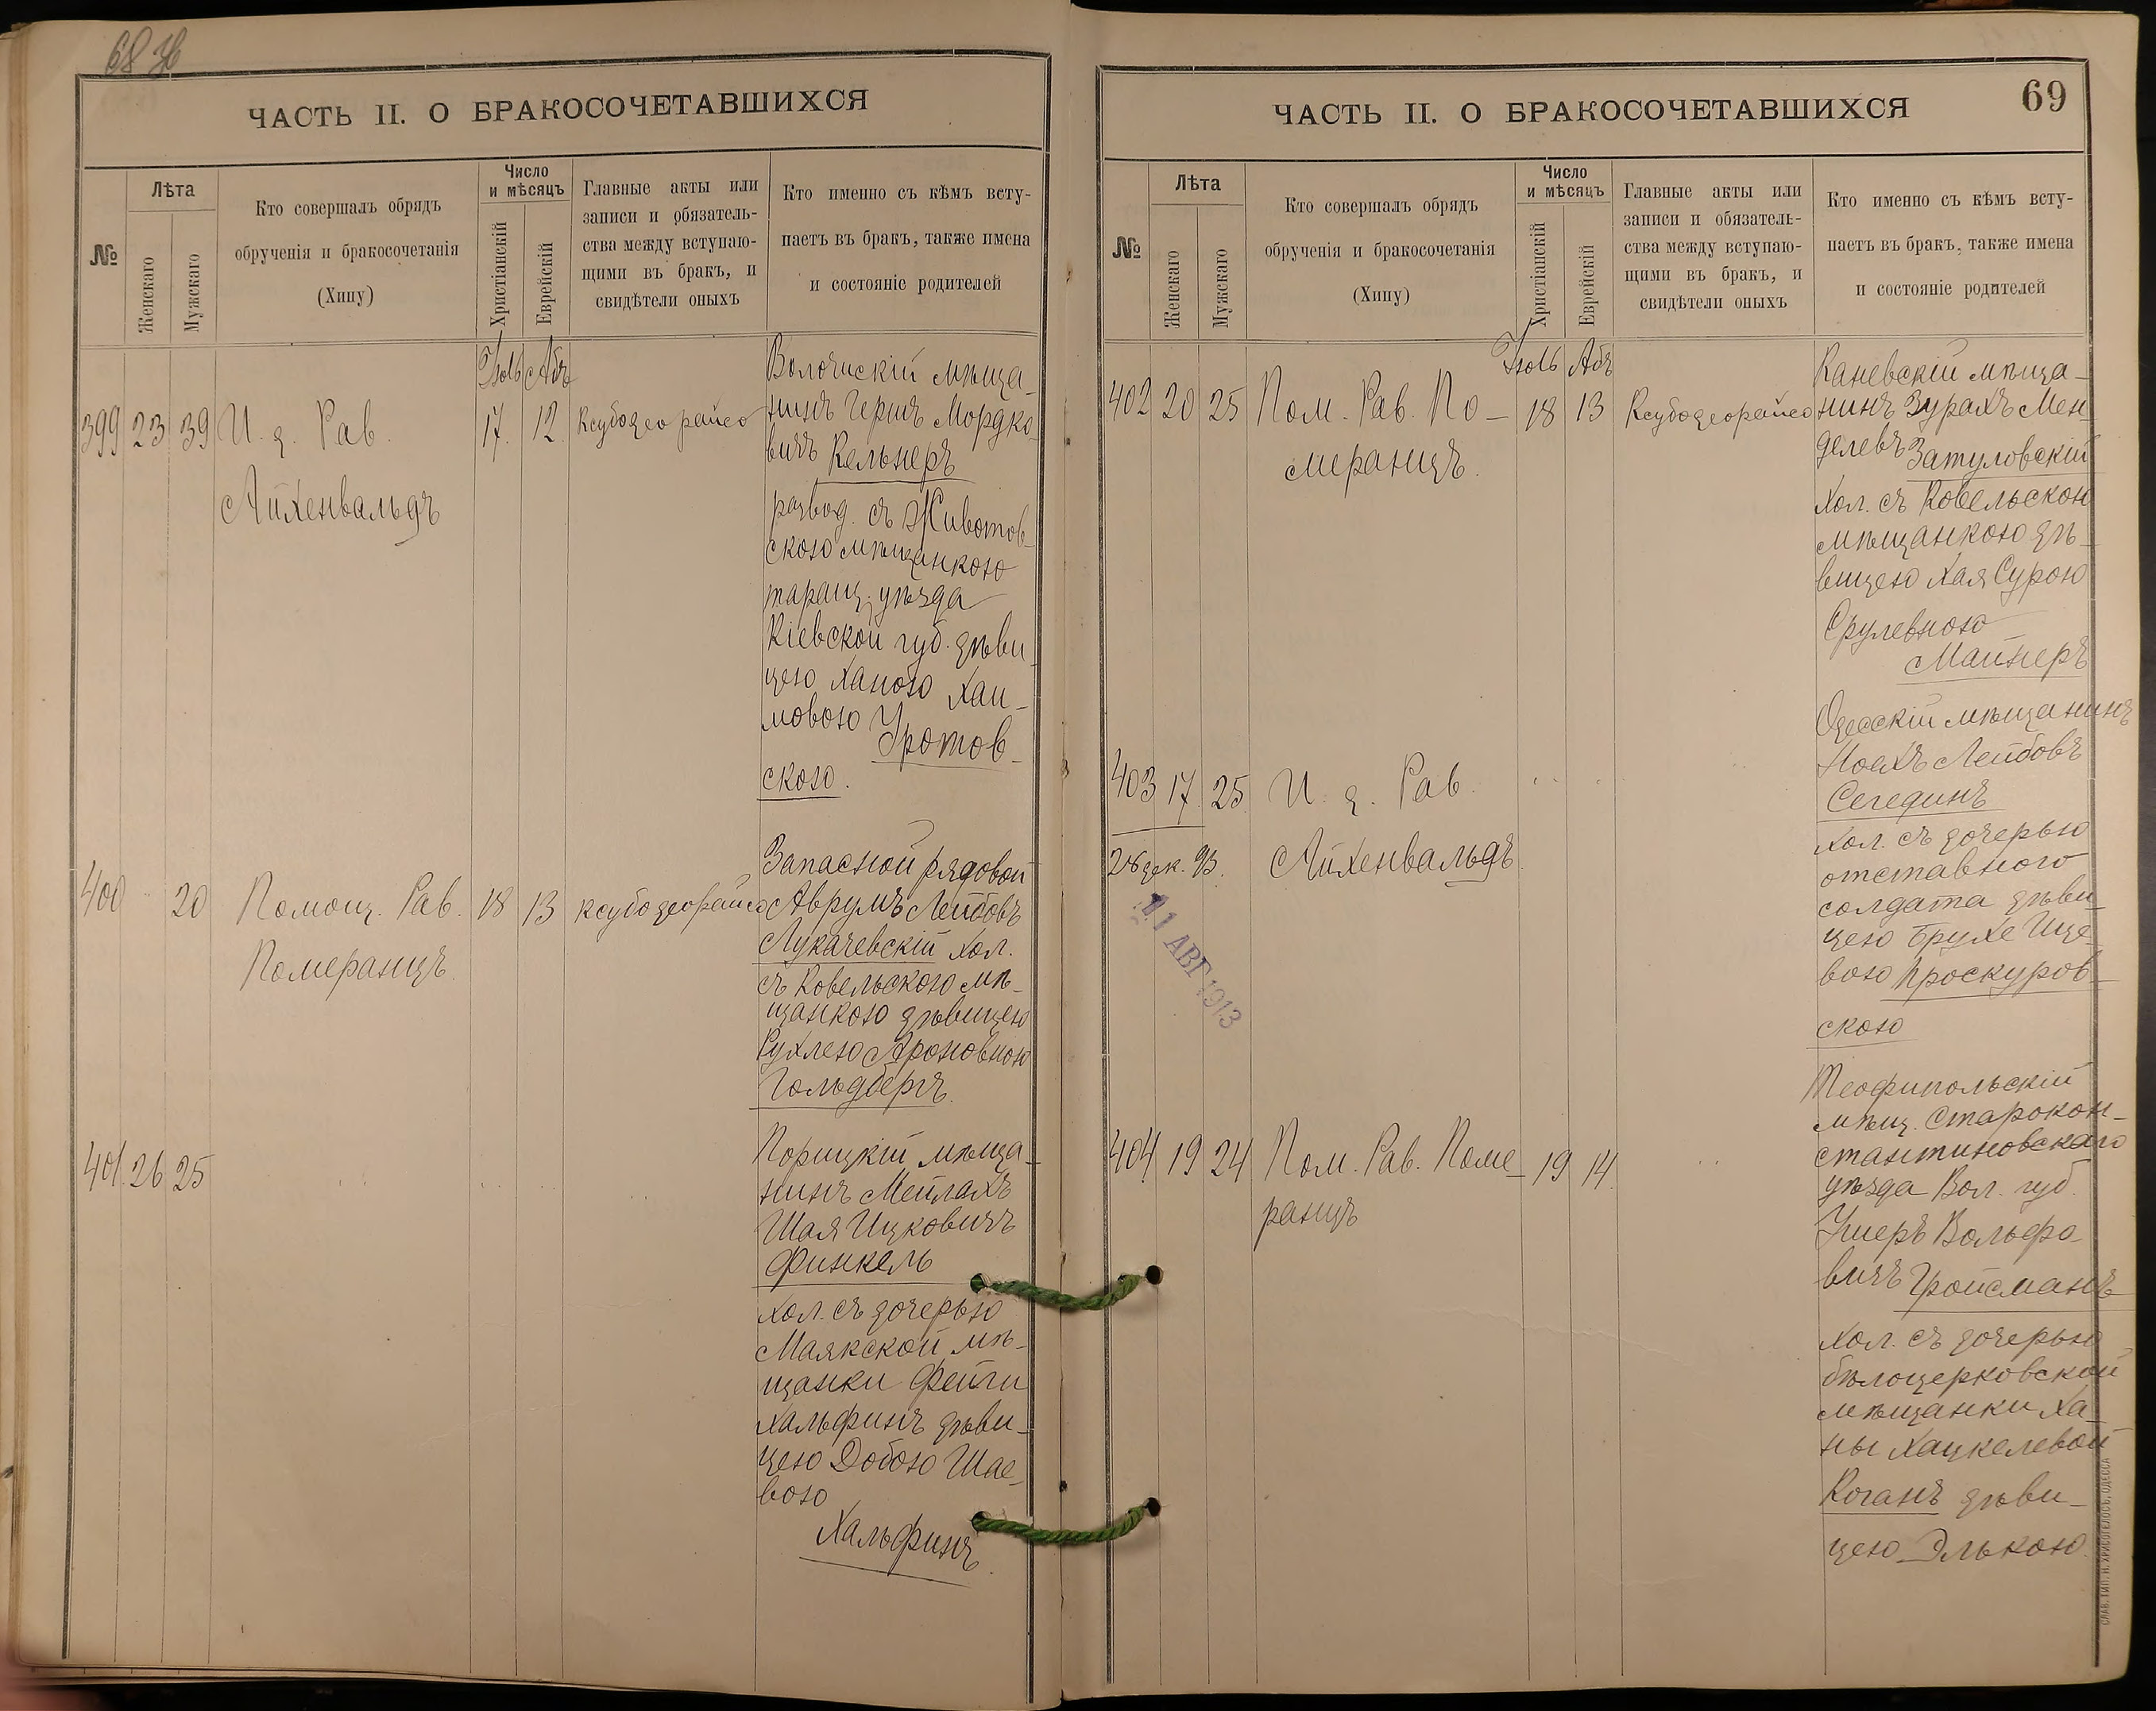 68 об
ЧАСТЬ II. О БРАКОСОЧЕТАВШИХСЯ
№
Лѣта
Женскаго
Мужскаго
Кто совершалъ обрядъ
обрученія и бракосочетанія
(Хипу)
Число
и мѣсяцъ
Христіанскій
Еврейскій
Главные акты или
записи и обязатель-
ства между вступаю-
щими въ бракъ, и
свидѣтели оныхъ
Кто именно съ кѣмъ всту-
паетъ въ бракъ, также имена
и состояніе родителей
Іюль Абъ
399 23 39 И. д. Рав.
Айхенвальдъ
17. 12. Ксубодеорайсо
Волочискій мѣща-
нинъ Гершъ Мордко-
вичъ Кельнеръ
развод. съ Животов-
скою мѣщанкою
таращ. уѣзда
Кіевской губ. дѣви-
цею Ханою Хаи-
мовою Уротов-
скою.
400 20 Помощ. Рав.
Померанцъ.
18 13 ксубодеорайсо
Запасной рядовой
Аврумъ Лейбовъ
Лукачевскій хол.
съ Ковельского мѣ-
щанкою дѣвицею
Рухлею Ароновною
Гольдбергъ.
401. 26 25
Порицкій мѣща-
нинъ Мейлахъ
Шая Ицковичъ
Финкель
хол. съ дочерью
Маякской мѣ-
щанки Фейги
Хальфинъ дѣви-
цею Добою Шае-
вою
Хальфинъ.
69
ЧАСТЬ II. О БРАКОСОЧЕТАВШИХСЯ
№
Лѣта
Женскаго
Мужскаго
Кто совершалъ обрядъ
обрученія и бракосочетанія
(Хипу)
Число
и мѣсяцъ
Христіанскій
Еврейскій
Главные акты или
записи и обязатель-
ства между вступаю-
щими въ бракъ, и
свидѣтели оныхъ
Кто именно съ кѣмъ всту-
паетъ въ бракъ, также имена
и состояніе родителей
Іюль Абъ
402 20 25 Пом. Рав. По-
меранцъ.
18 13 Ксубодеорайсо
Каневскій мѣща-
нинъ Зурахъ Мен-
делевъ Затуловскій
хол. съ Ковельскою
мѣщанкою дѣ-
вицею Хая Сурою
Срулевною
Майнеръ
403 17 25 И. д. Рав.
Айхенвальдъ
28 дек. 93.
11 АВГ 1913
Одесскій мѣщанинъ
Ноехъ Лейбовъ
Сегединъ
хол. съ дочерью
отставного
солдата дѣви-
цею Брухе Ице-
вою Проскуров-
скою
404 19 24 Пом. Рав. Поме-
ранцъ
19 14
Теофипольскій
мѣщ. Старокон-
стантиновскаго
уѣзда Вол. губ.
Ушеръ Вольфо-
вичъ Гройсманъ
хол. съ дочерью
бѣлоцерковской
мѣщанки Ха-
ны Хацкелевой
Коганъ дѣви-
цею Элькою.
СЛАВ. ТИП. Н. ХРИСОГЕЛОСЪ, ОДЕССА